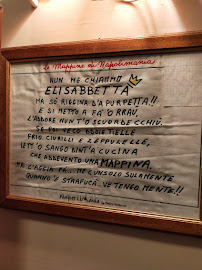 le Mappine di Napolimania
NUN ME CHIAMMO
ELISABBETTA
MA SÓ RIGGINA D'A PURPETTA!!
E SI METTO A FÀ 'O RRAÙ,
L'ADDORE NUN T'O SCUORDE CCHIÙ,
SE POI VECO DDOIE TIELLE
FRIO CIURILLI E ZEPPULELLE,
JETT'O SANGO DINT'A CUCINA
CHE ADDEVENTO UNA MAPPINA,
MA L'ACCIA PA... ME CUNSOLO SULAMENTE
QUANNO V'STRAFUCA.. VE TENGO MENTE!!